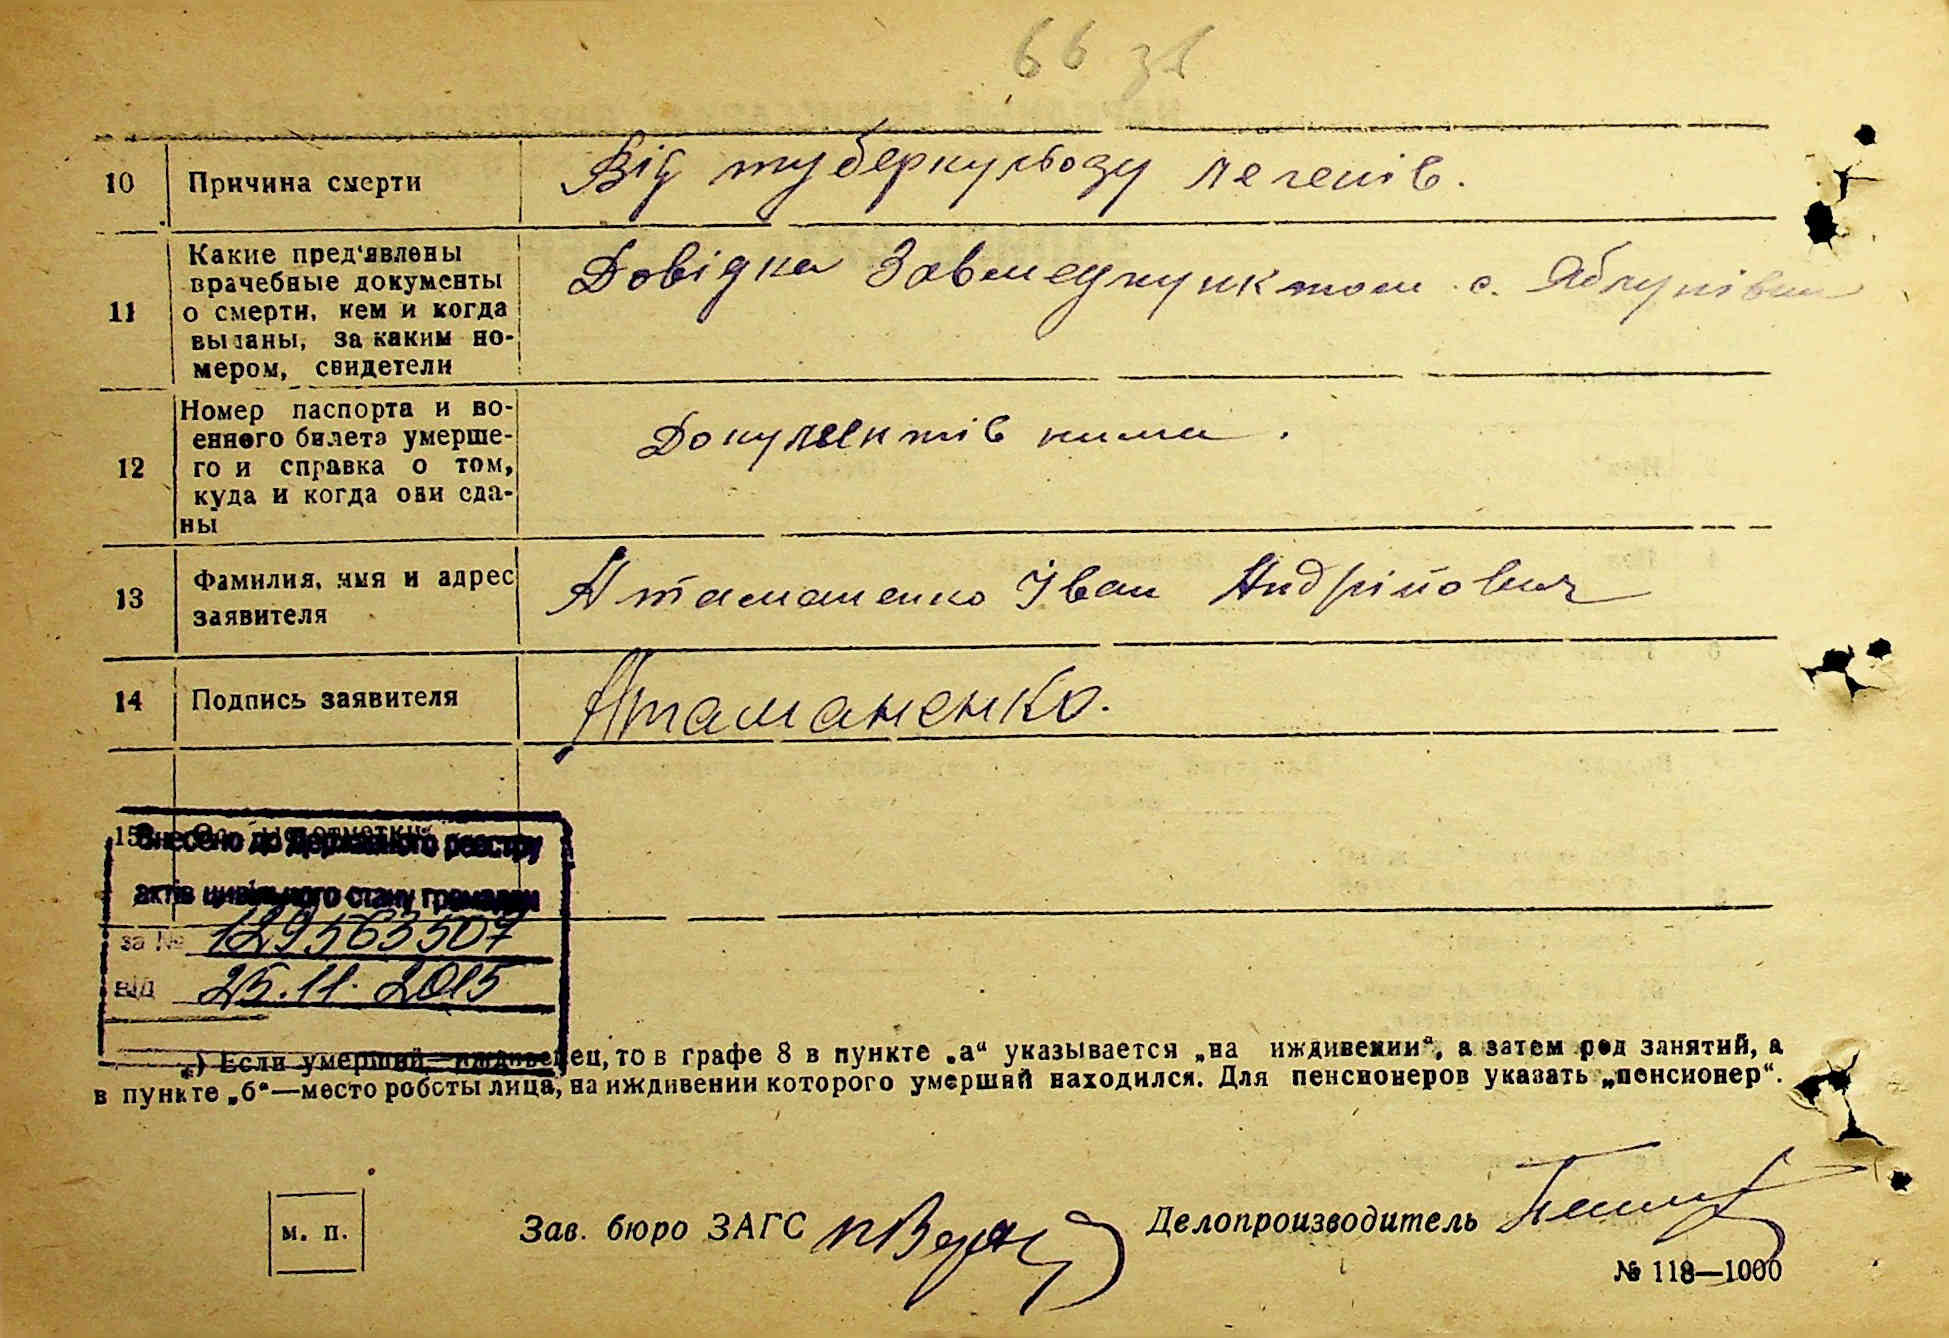 66 зв
10 Причина смерти Від туберкульозу легенів.
11 Какие пред'явлены
врачебные документы
о смерти, кем и когда
выданы, за каким но-
мером, свидетели
Довідка Завмедпунктом с. Яблунівки
12 Номер паспорта и во-
енного билета умерше-
го и справка о том,
куда и когда они сда-
ны
Документів нима.
13 Фамилия, имя и адрес
заявителя
Атаманенко Іван Андрійович
14 Подпись заявителя Атаманенко.
15
Внесено до Державного реєстру
актів цивільного стану громадян
за № 1295563507
від 25.11.2015
*) Если умерший иждивенец, то в графе 8 в пункте „а“ указывается „на иждивении“, а затем род занятий, а
в пункте „б“—место роботы лица, на иждивении которого умерший находился. Для пенсионеров указать „пенсионер“.
м. п.
Зав. бюро ЗАГС
Делопроизводитель
№ 118—1000